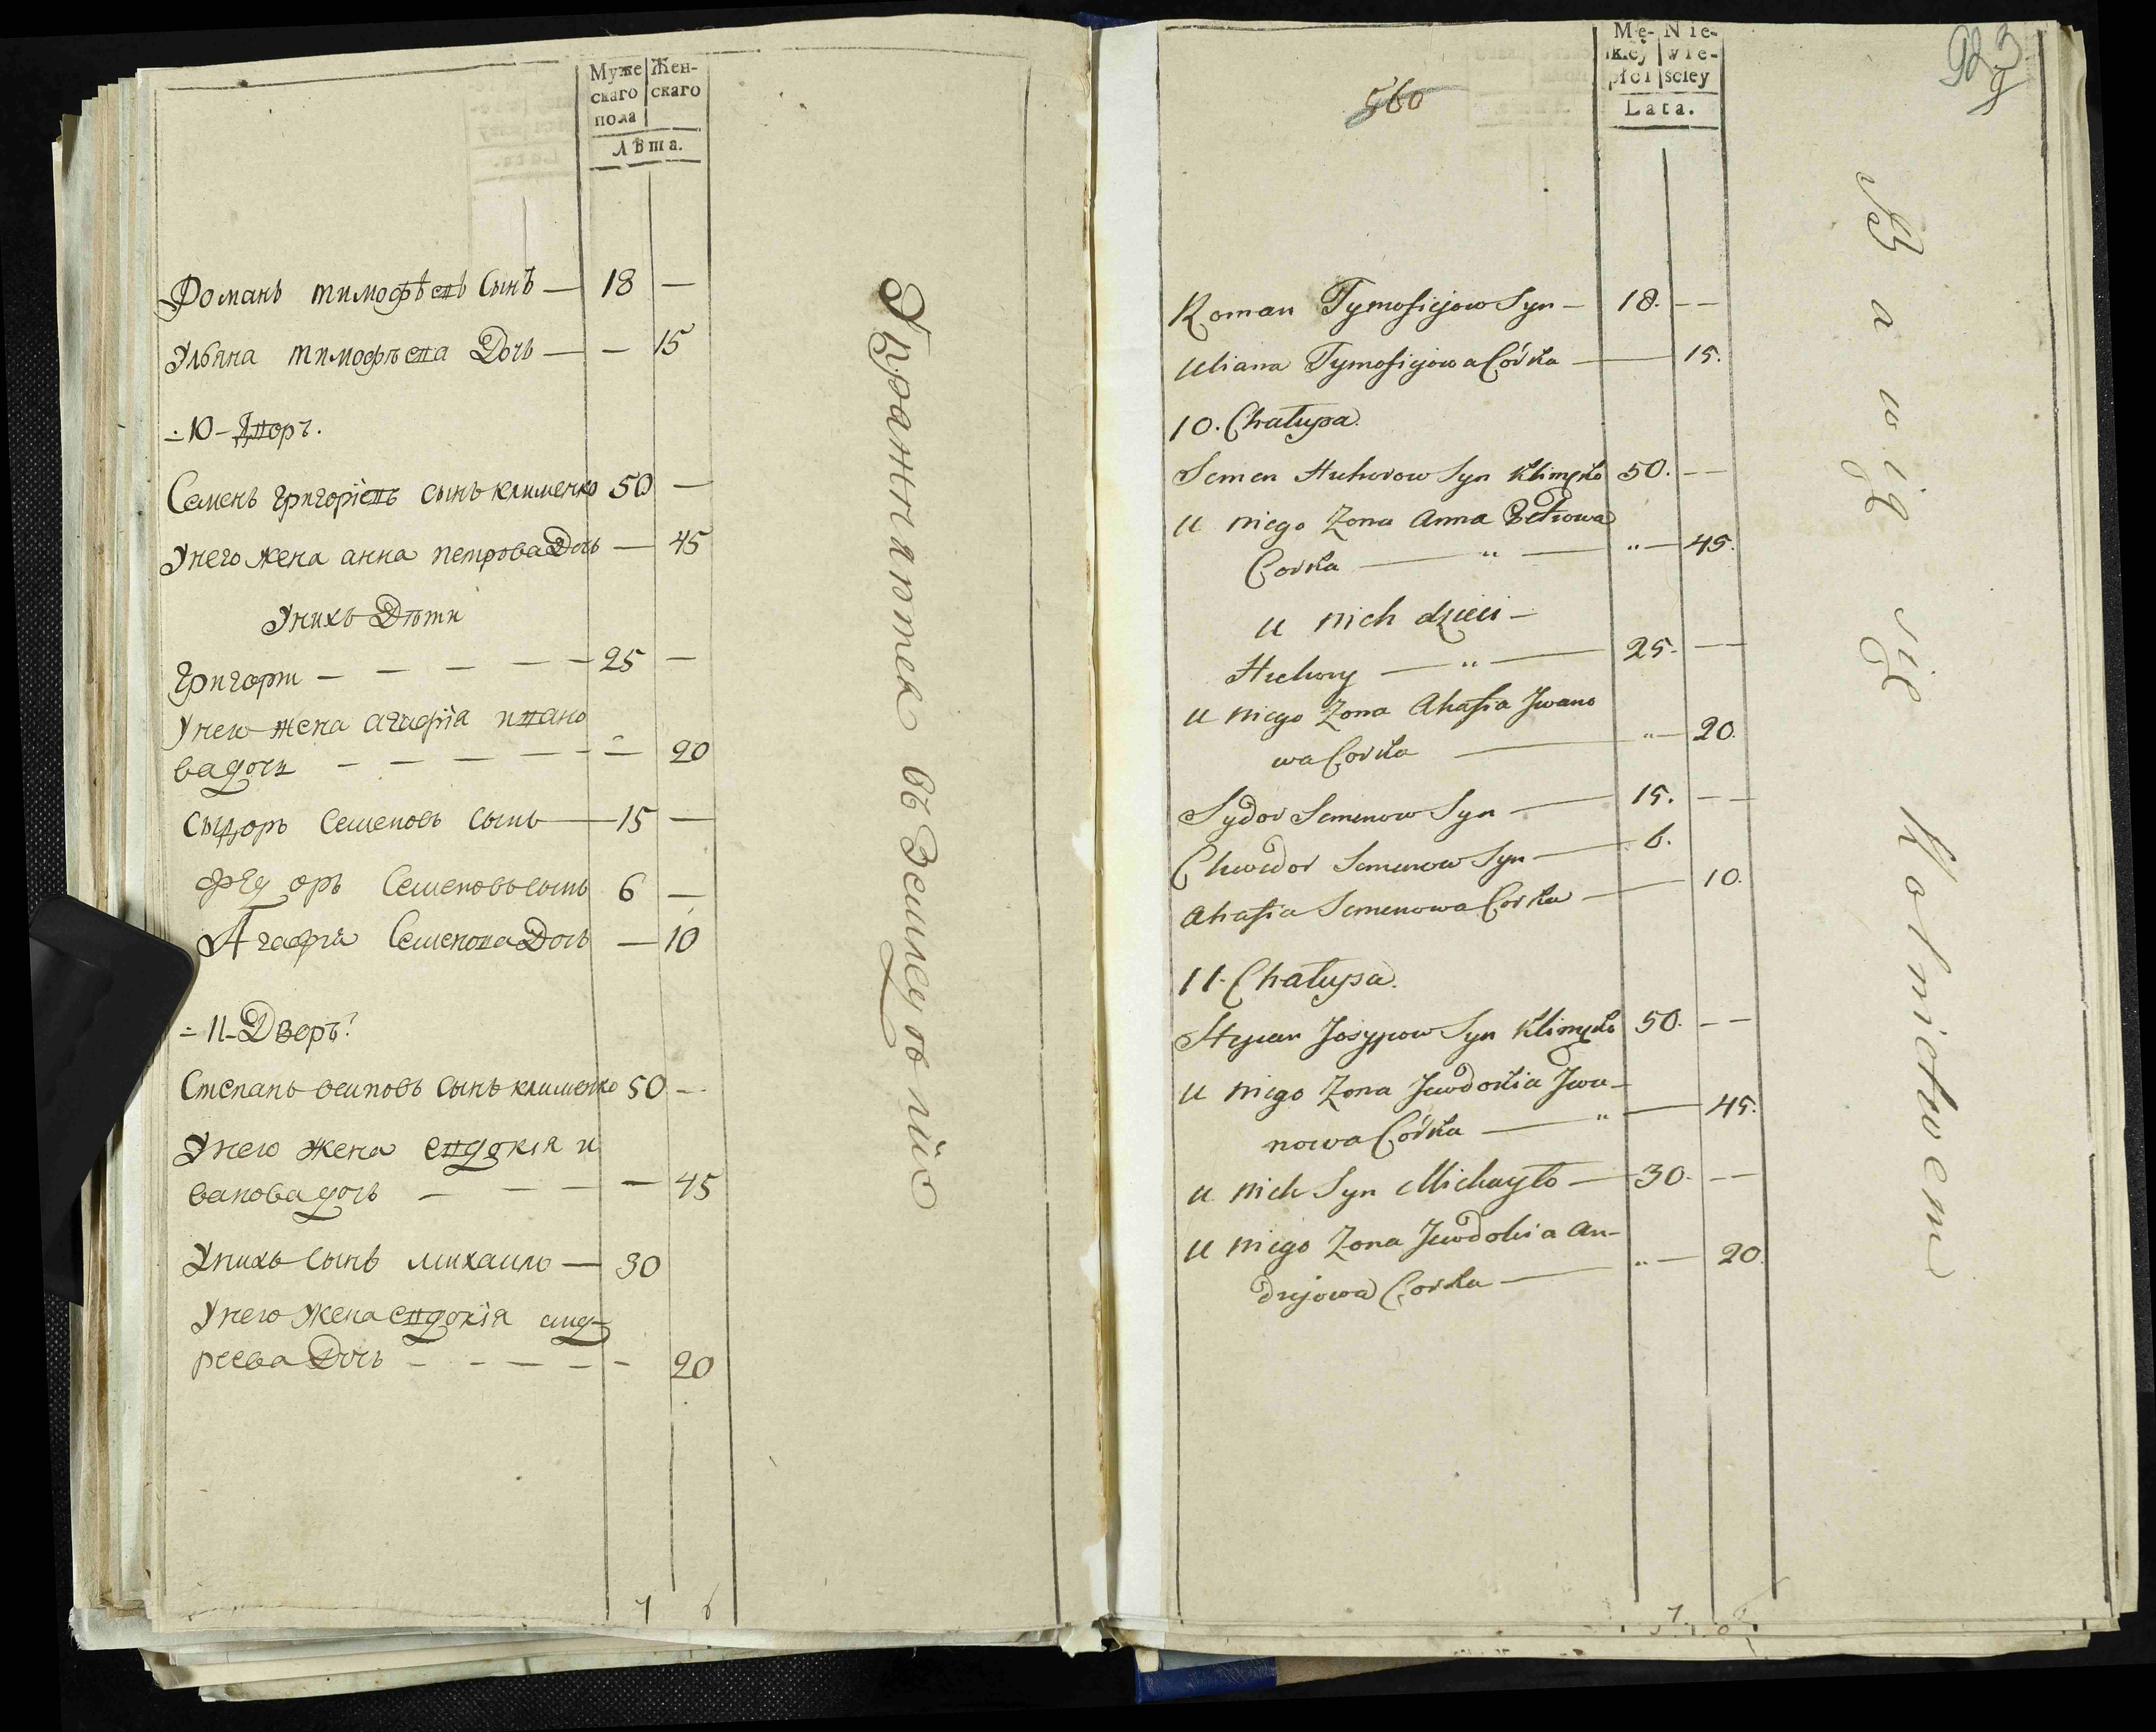 Муже Жен-
скаго скаго
пола
Лѣта.
Романъ тимофѣевъ сынъ — 18 —
Ульяна тимофѣева Дочь — — 15
÷ 10 - Дворъ.
Семенъ григоріевъ сынъ клименко 50 —
Унего жена анна петрова Дочь — 45
Унихъ Дѣти
григори — — — — — 25 —
Унего жена агафія ивано
ва дочь — — — — — — 20
сыдоръ Семеновъ сынъ — 15 —
федоръ Семеновъ сынъ 6 —
Агафія Семенова Дочь — 10
÷ 11 - Дворъ.
Степанъ осиповъ сынъ клименко 50 —
Унего жена евдокія и
ванова дочь — — — — 45
Унихъ сынъ михаило — 30
Унего жена евдокія анд-
реева Дочь — — — — — 20
7 6
Упражняются въ
560
Mę- Nie-
skiej wie-
płci sciey
Lata.
Roman Tymofiejow Syn — 18. — —
Uliana Tymofiejowa Córka — 15.
10. Chałupa.
Semen Hrehorow Syn Klimęko 50. — —
u niego Zona Anna Petrowa
Corka — " — " — 45.
u nich dzieci —
Hrehory — " — 25. — —
u niego Zona Ahafia Jwano
wa Corka — " — 20.
Sydor Semenow Syn — 15. — —
Chwedor Semenow Syn — 6.
Ahafia Semenowa Corka — 10.
11. Chałupa.
Stepan Josypow Syn Klimęko 50. — —
u niego Zona Jewdokia Jwa-
nowa Córka — " — 45.
u nich Syn Michayło — 30. — —
u niego Zona Jewdokia An-
drejowa Corka — " — 20.
7. 6
Bawią się Rolnictwem